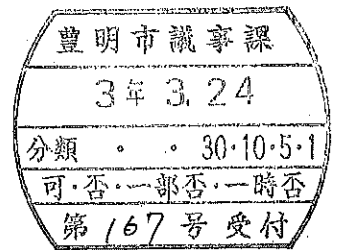 豊明市議事課
3年 3. 24
分類 ・ ・ 30・10・5・1
可・否・一部否・一時否
第 167 号受付